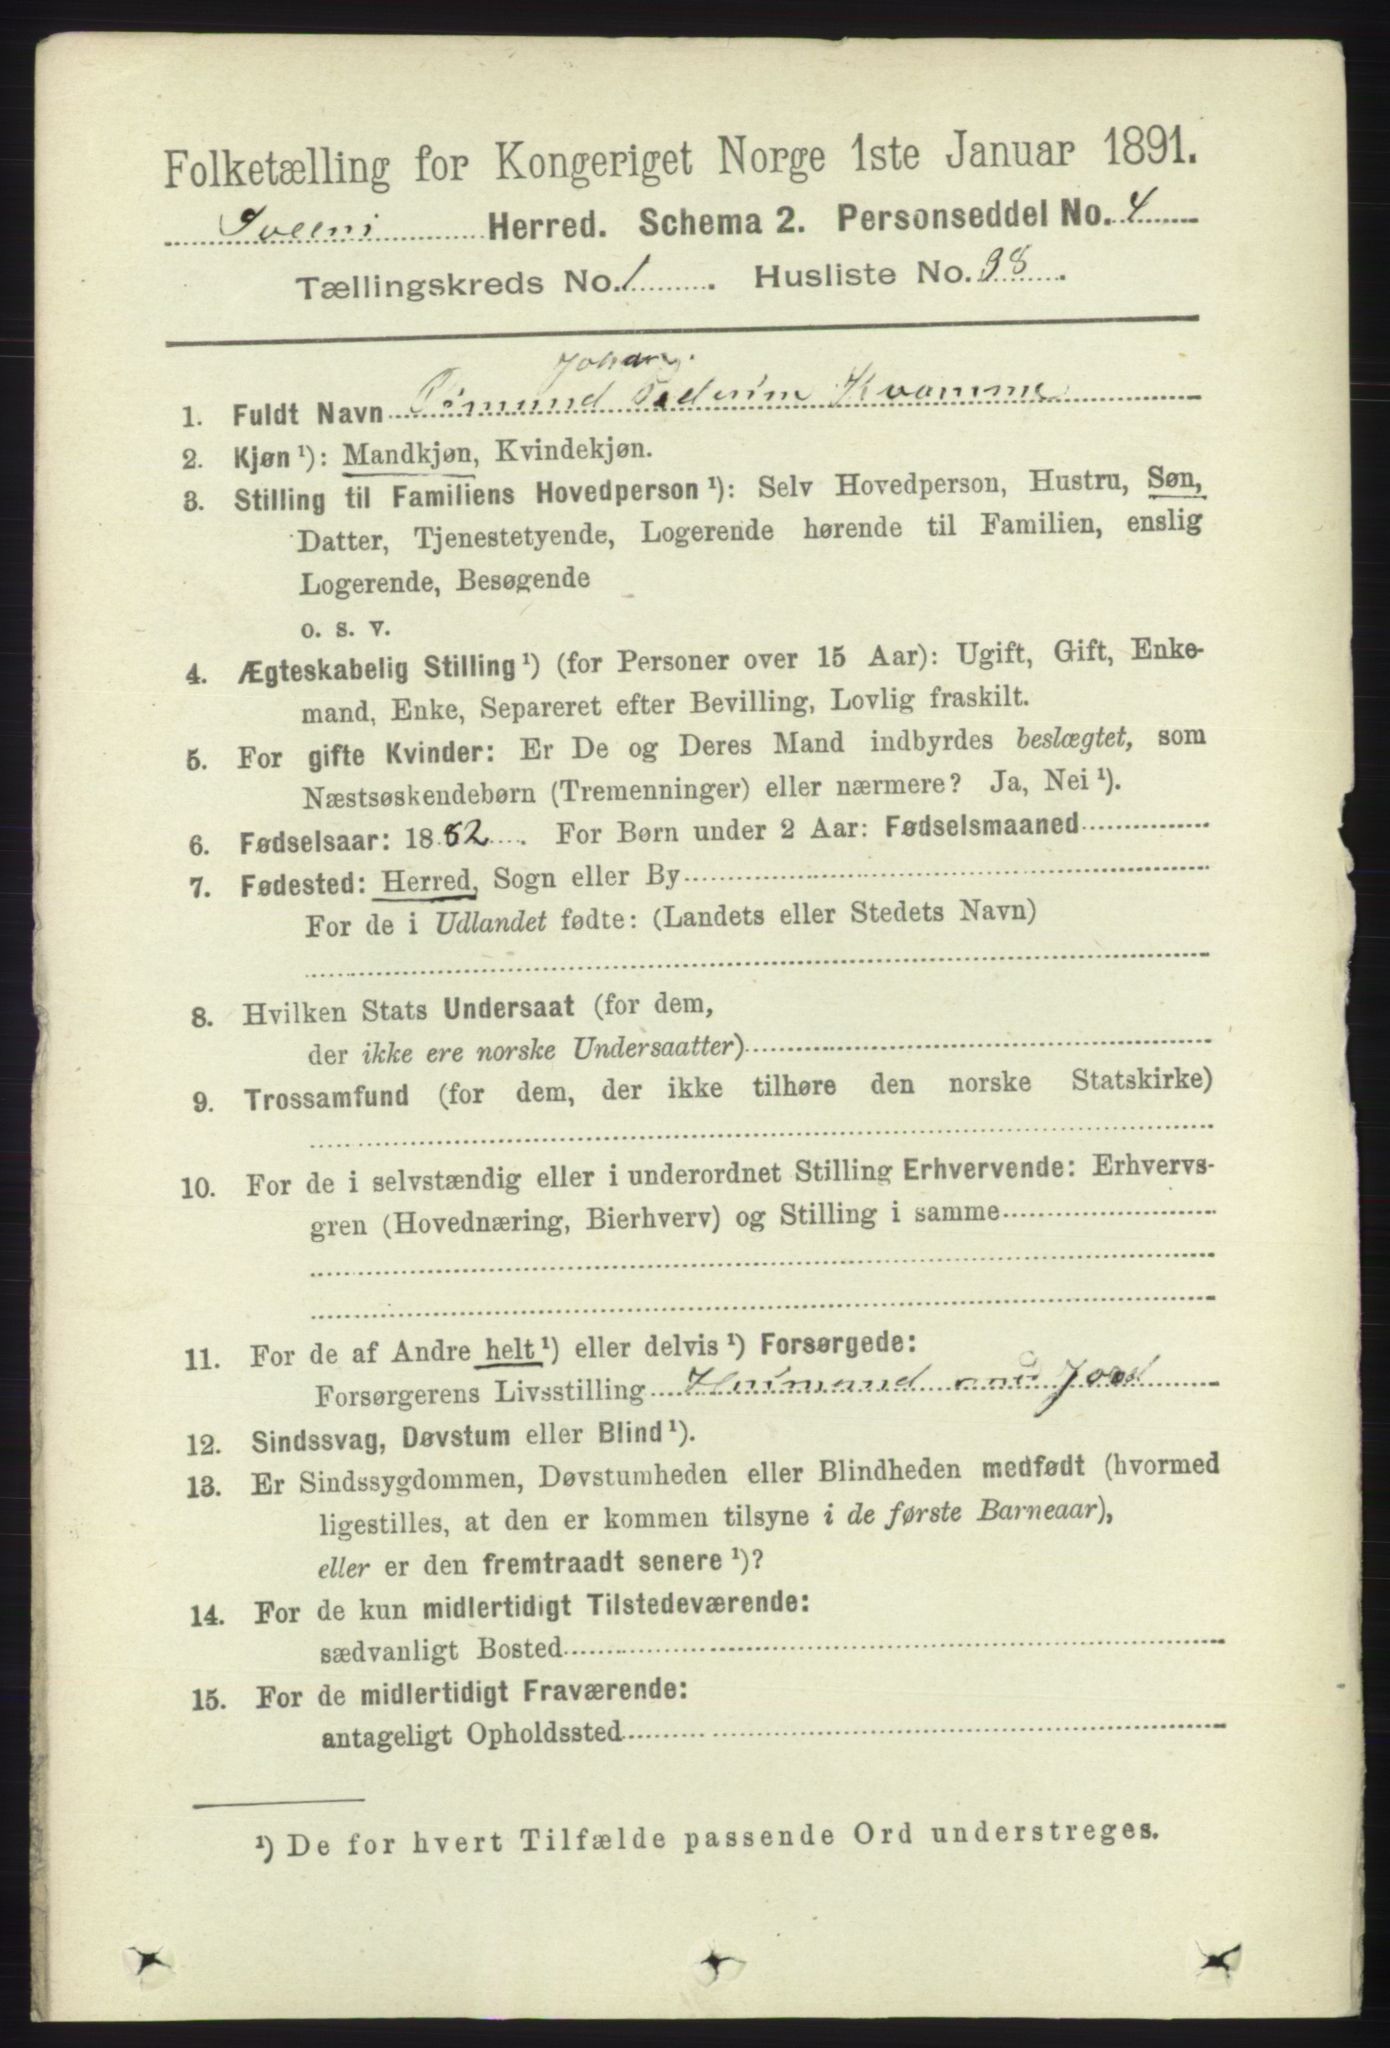 Folketælling for Kongeriget Norge 1ste Januar 1891.
Herred. Schema 2. Personseddel No. 4
Tællingskreds No. 1. Husliste No. 38.
Johan
1. Fuldt Navn Kvamme
2. Kjøn ¹): Mandkjøn, Kvindekjøn.
3. Stilling til Familiens Hovedperson ¹): Selv Hovedperson, Hustru, Søn,
Datter, Tjenestetyende, Logerende hørende til Familien, enslig
Logerende, Besøgende
o. s. v.
4. Ægteskabelig Stilling ¹) (for Personer over 15 Aar): Ugift, Gift, Enke-
mand, Enke, Separeret efter Bevilling, Lovlig fraskilt.
5. For gifte Kvinder: Er De og Deres Mand indbyrdes beslægtet, som
Næstsøskendebørn (Tremenninger) eller nærmere? Ja, Nei ¹).
6. Fødselsaar: 1882. For Børn under 2 Aar: Fødselsmaaned
7. Fødested: Herred, Sogn eller By
For de i Udlandet fødte: (Landets eller Stedets Navn)
8. Hvilken Stats Undersaat (for dem,
der ikke ere norske Undersaatter)
9. Trossamfund (for dem, der ikke tilhøre den norske Statskirke)
10. For de i selvstændig eller i underordnet Stilling Erhvervende: Erhvervs-
gren (Hovednæring, Bierhverv) og Stilling i samme
11. For de af Andre helt ¹) eller delvis ¹) Forsørgede:
Forsørgerens Livsstilling Husmand med Jord
12. Sindssvag, Døvstum eller Blind ¹).
13. Er Sindssygdommen, Døvstumheden eller Blindheden medfødt (hvormed
ligestilles, at den er kommen tilsyne i de første Barneaar),
eller er den fremtraadt senere ¹)?
14. For de kun midlertidigt Tilstedeværende:
sædvanligt Bosted
15. For de midlertidigt Fraværende:
antageligt Opholdssted
¹) De for hvert Tilfælde passende Ord understreges.